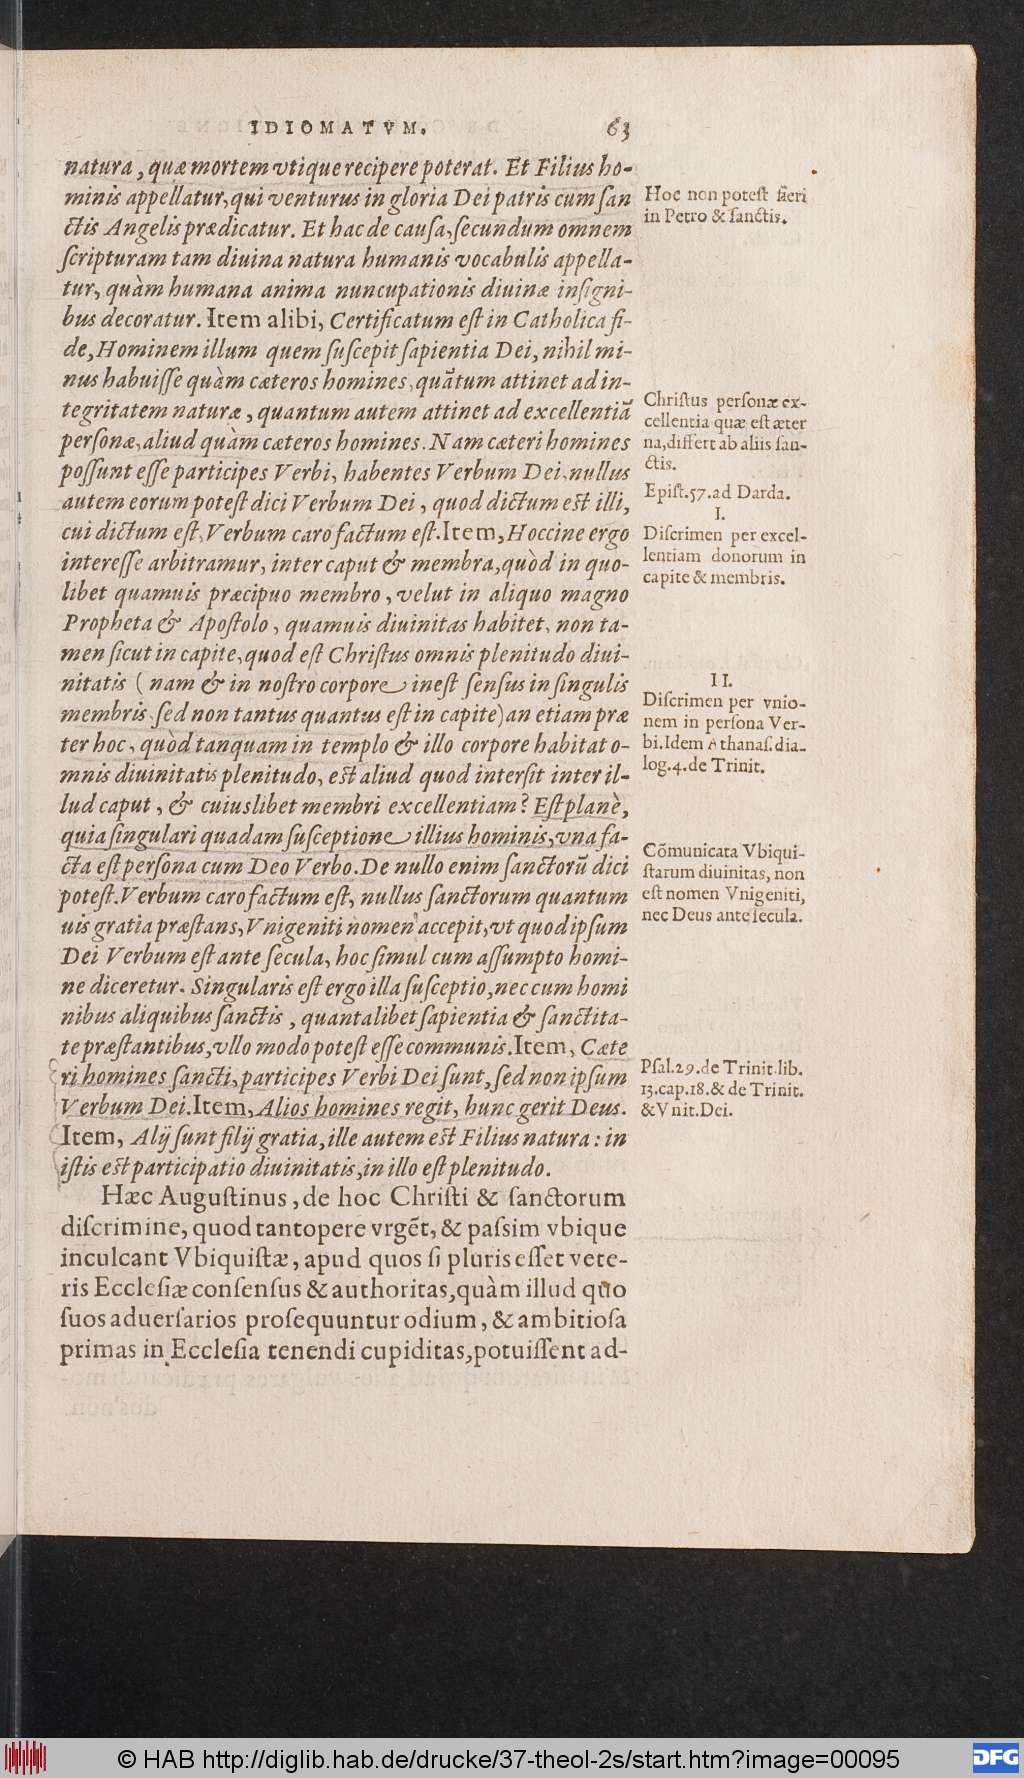 IDIOMATVM. 63
natura, quæ mortem vtique recipere poterat. Et Filius ho-
minis appellatur, qui venturus in gloria Dei patris cum san
ctis Angelis prædicatur. Et hac de causa, secundum omnem
scripturam tam diuina natura humanis vocabulis appella-
tur, quàm humana anima nuncupationis diuinæ insigni-
bus decoratur. Item alibi, Certificatum est in Catholica fi-
de, Hominem illum quem suscepit sapientia Dei, nihil mi-
nus habuisse quàm cæteros homines, quãtum attinet ad in-
tegritatem naturæ, quantum autem attinet ad excellentiã
personæ, aliud quàm cæteros homines. Nam cæteri homines
possunt esse participes Verbi, habentes Verbum Dei, nullus
autem eorum potest dici Verbum Dei, quod dictum est illi,
cui dictum est, Verbum caro factum est. Item, Hoccine ergo
interesse arbitramur, inter caput & membra, quòd in quo-
libet quamuis præcipuo membro, velut in aliquo magno
Propheta & Apostolo, quamuis diuinitas habitet, non ta-
men sicut in capite, quod est Christus omnis plenitudo diui-
nitatis (nam & in nostro corpore inest sensus in singulis
membris, sed non tantus quantus est in capite) an etiam præ
ter hoc, quòd tanquam in templo & illo corpore habitat o-
mnis diuinitatis plenitudo, est aliud quod intersit inter il-
lud caput, & cuiuslibet membri excellentiam? Est planè,
quia singulari quadam susceptione illius hominis, vna fa-
cta est persona cum Deo Verbo. De nullo enim sanctorũ dici
potest. Verbum caro factum est, nullus sanctorum quantum
uis gratia præstans, Vnigeniti nomen accepit, vt quod ipsum
Dei Verbum est ante secula, hoc simul cum assumpto homi-
ne diceretur. Singularis est ergo illa susceptio, nec cum homi
nibus aliquibus sanctis, quantalibet sapientia & sanctita-
te præstantibus, vllo modo potest esse communis. Item, Cæte
ri homines sancti, participes Verbi Dei sunt, sed non ipsum
Verbum Dei. Item, Alios homines regit, hunc gerit Deus.
Item, Alij sunt filij gratia, ille autem est Filius natura: in
istis est participatio diuinitatis, in illo est plenitudo.
Hæc Augustinus, de hoc Christi & sanctorum
discrimine, quod tantopere vrgẽt, & passim vbique
inculcant Vbiquistæ, apud quos si pluris esset vete-
ris Ecclesiæ consensus & authoritas, quàm illud quo
suos aduersarios prosequuntur odium, & ambitiosa
primas in Ecclesia tenendi cupiditas, potuissent ad-
Hoc non potest fieri
in Petro & sanctis.
Christus personæ ex-
cellentia quæ est æter
na, differt ab aliis san-
ctis.
Epist. 57. ad Darda.
I.
Discrimen per excel-
lentiam donorum in
capite & membris.
II.
Discrimen per vnio-
nem in persona Ver-
bi. Idem Athanas. dia-
log. 4. de Trinit.
Cõmunicata Vbiqui-
starum diuinitas, non
est nomen Vnigeniti,
nec Deus ante secula.
Psal. 29. de Trinit. lib.
13. cap. 18. & de Trinit.
& Vnit. Dei.
© HAB http://diglib.hab.de/drucke/37-theol-2s/start.htm?image=00095
DFG